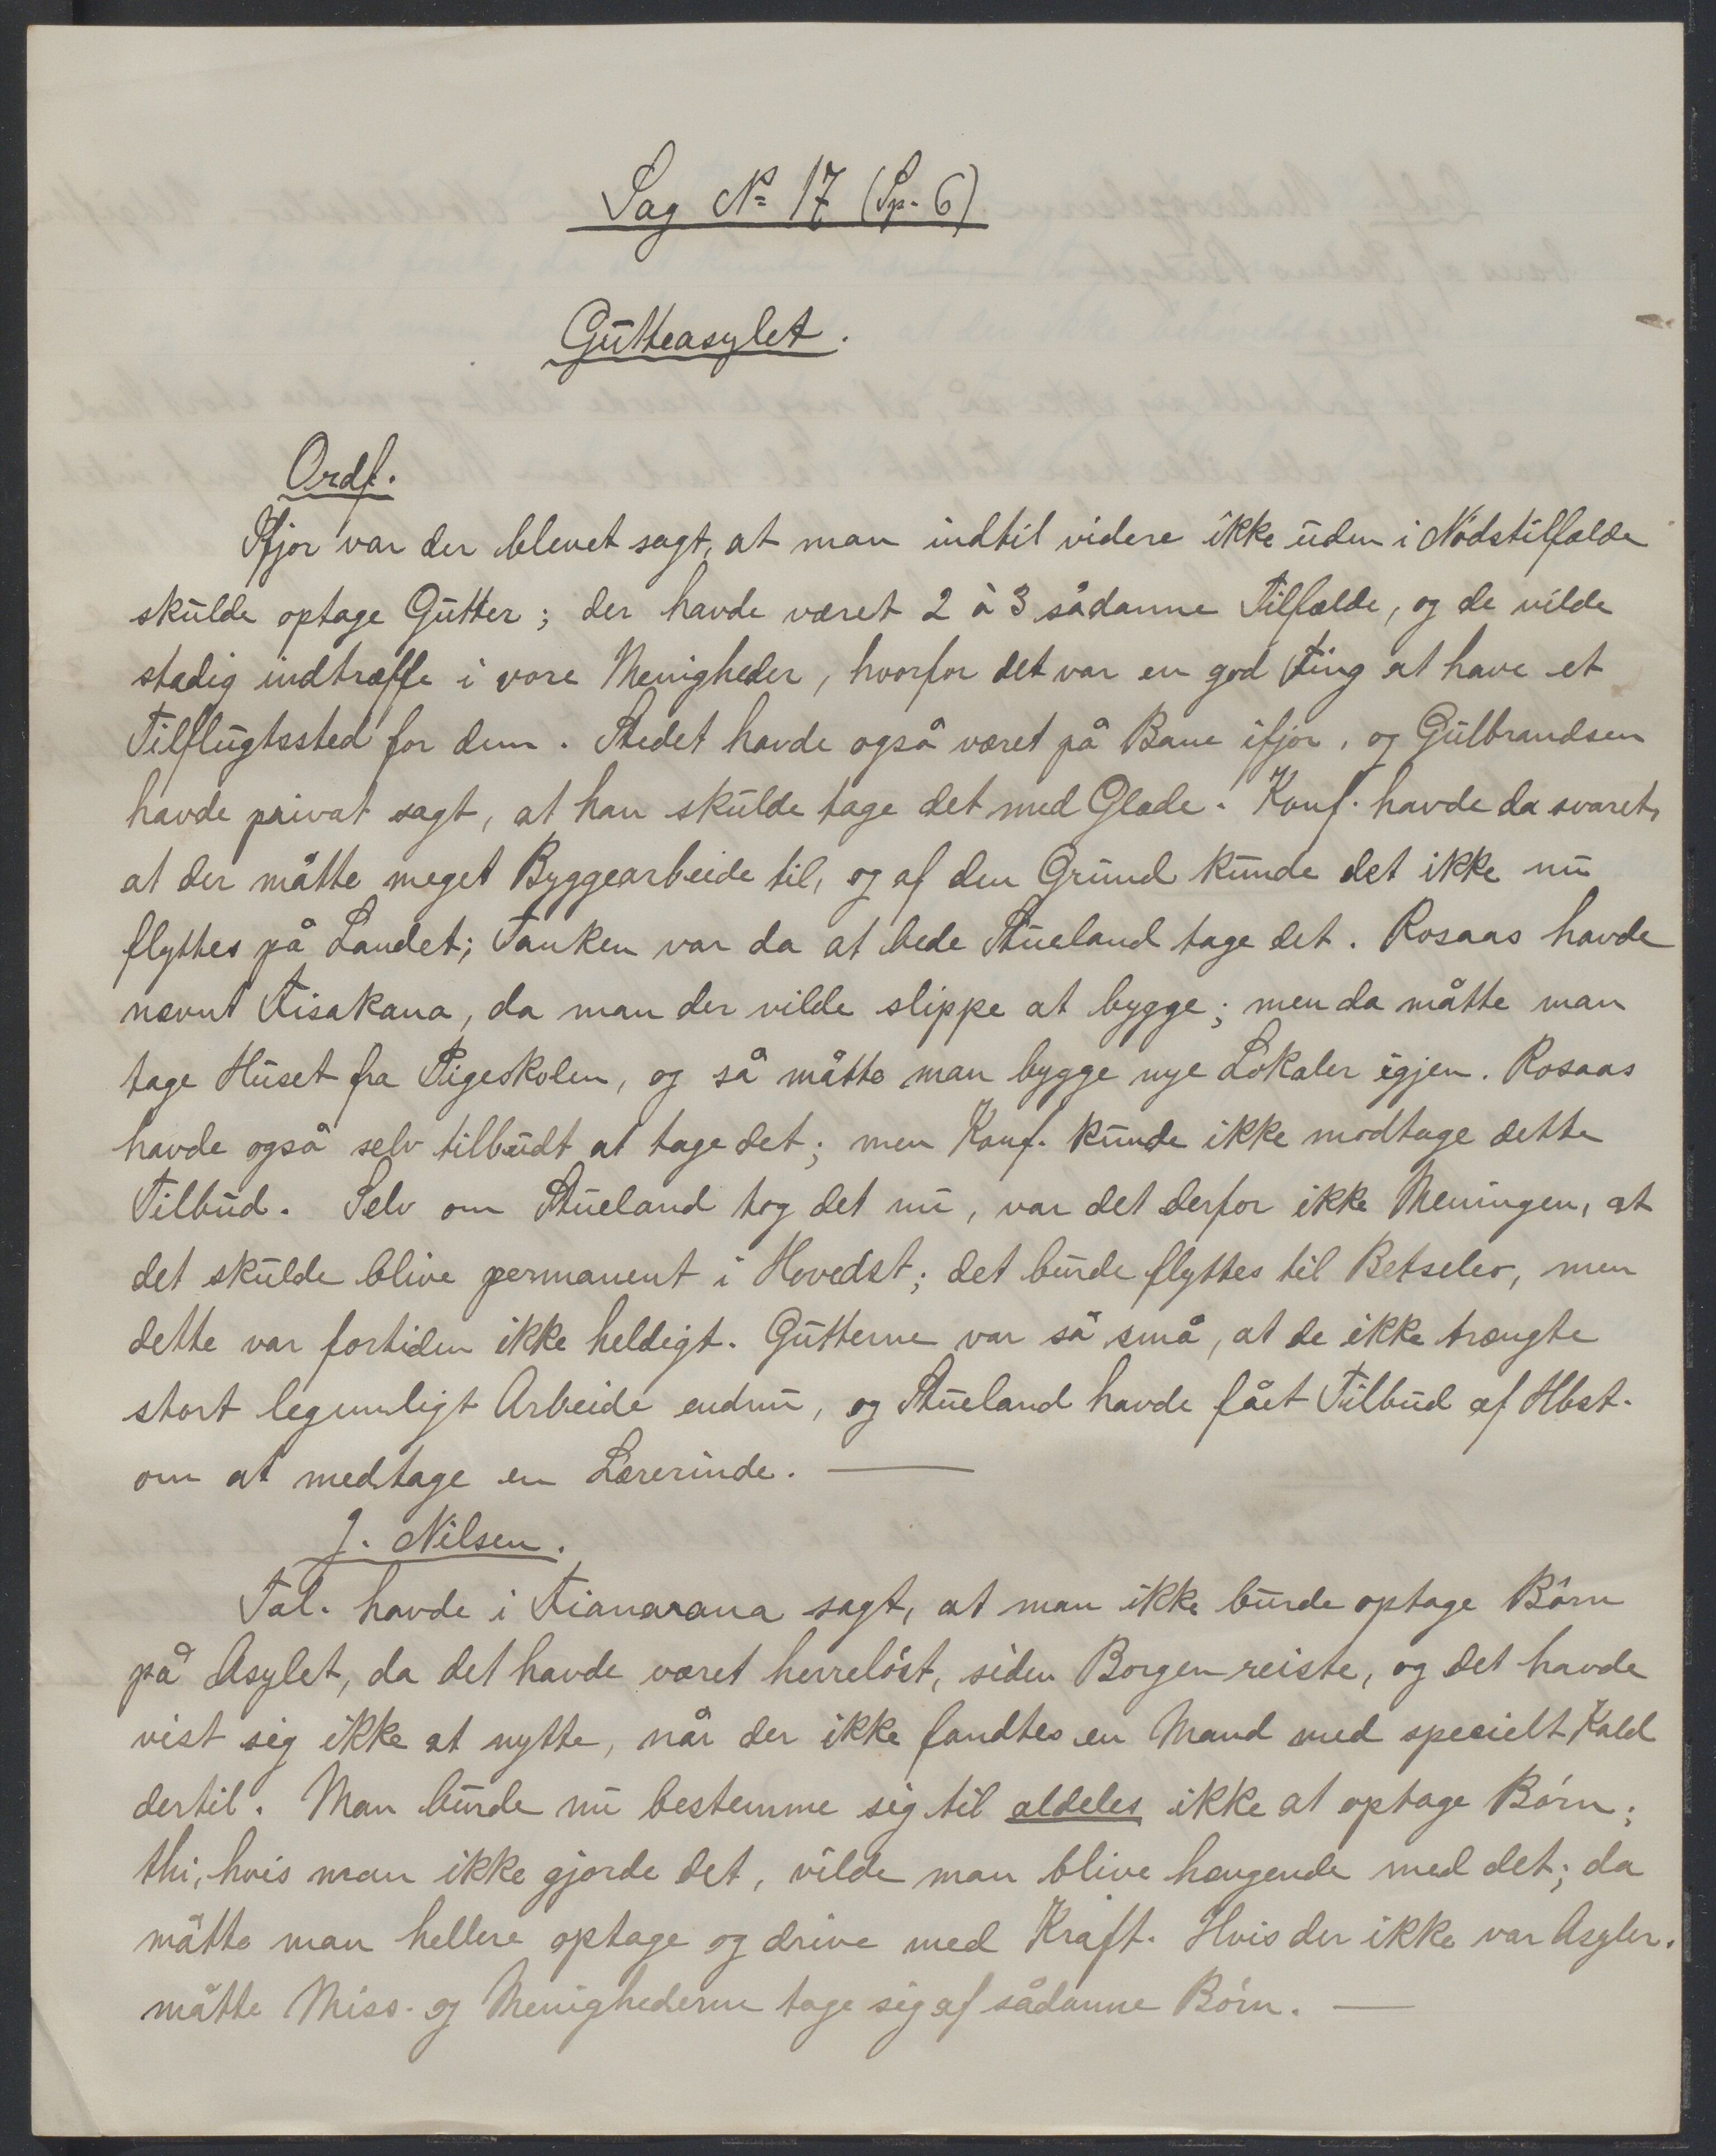 Sag No 17 (Sp. 6)
Gutteasylet.
Ordf.
Ifjor var der blevet sagt, at man indtil videre ikke uden i Nödstilfælde
skulde optage Gutter; der havde været 2 à 3 sådanne Tilfælde, og de vilde
stadig indtræffe i vore Menigheder, hvorfor det var en god Ting at have et
Tilflugtssted for dem. Stedet havde også været på Bane ifjor, og Gulbrandsen
havde privat sagt, at han skulde tage det med Glæde. Konf. havde da svaret,
at der måtte meget Byggearbeide til, og af den Grund kunde det ikke nu
flyttes på Landet; Tanken var da at bede Stueland tage det. Rosaas havde
nævnt Fisakana, da man der vilde slippe at bygge; men da måtte man
tage Huset fra Pigeskolen, og så måtte man bygge nye Lokaler igjen. Rosaas
havde også selv tilbudt at tage det; men Konf. kunde ikke modtage dette
Tilbud. Selv om Stueland tog det nu, var det derfor ikke Meningen, at
det skulde blive permanent i Hovedst; det burde flyttes til Betseleo, men
dette var fortiden ikke heldigt. Gutterne var så små, at de ikke trængte
stort legemligt Arbeide endnu, og Stueland havde fået Tilbud af Hbst.
om at medtage en Lærerinde. —
J. Nilsen.
Tal. havde i Fianarana sagt, at man ikke burde optage Börn
på Asylet, da det havde været herrelöst, siden Borgen reiste, og det havde
vist sig ikke at nytte, når der ikke fandtes en Mand med specielt Kald
dertil. Man burde nu bestemme sig til aldeles ikke at optage Börn;
thi, hvis man ikke gjorde det, vilde man blive hængende med det; da
måtte man hellere optage og drive med Kraft. Hvis der ikke var Asyler,
måtte Miss. og Menighederne tage sig af sådanne Börn. —